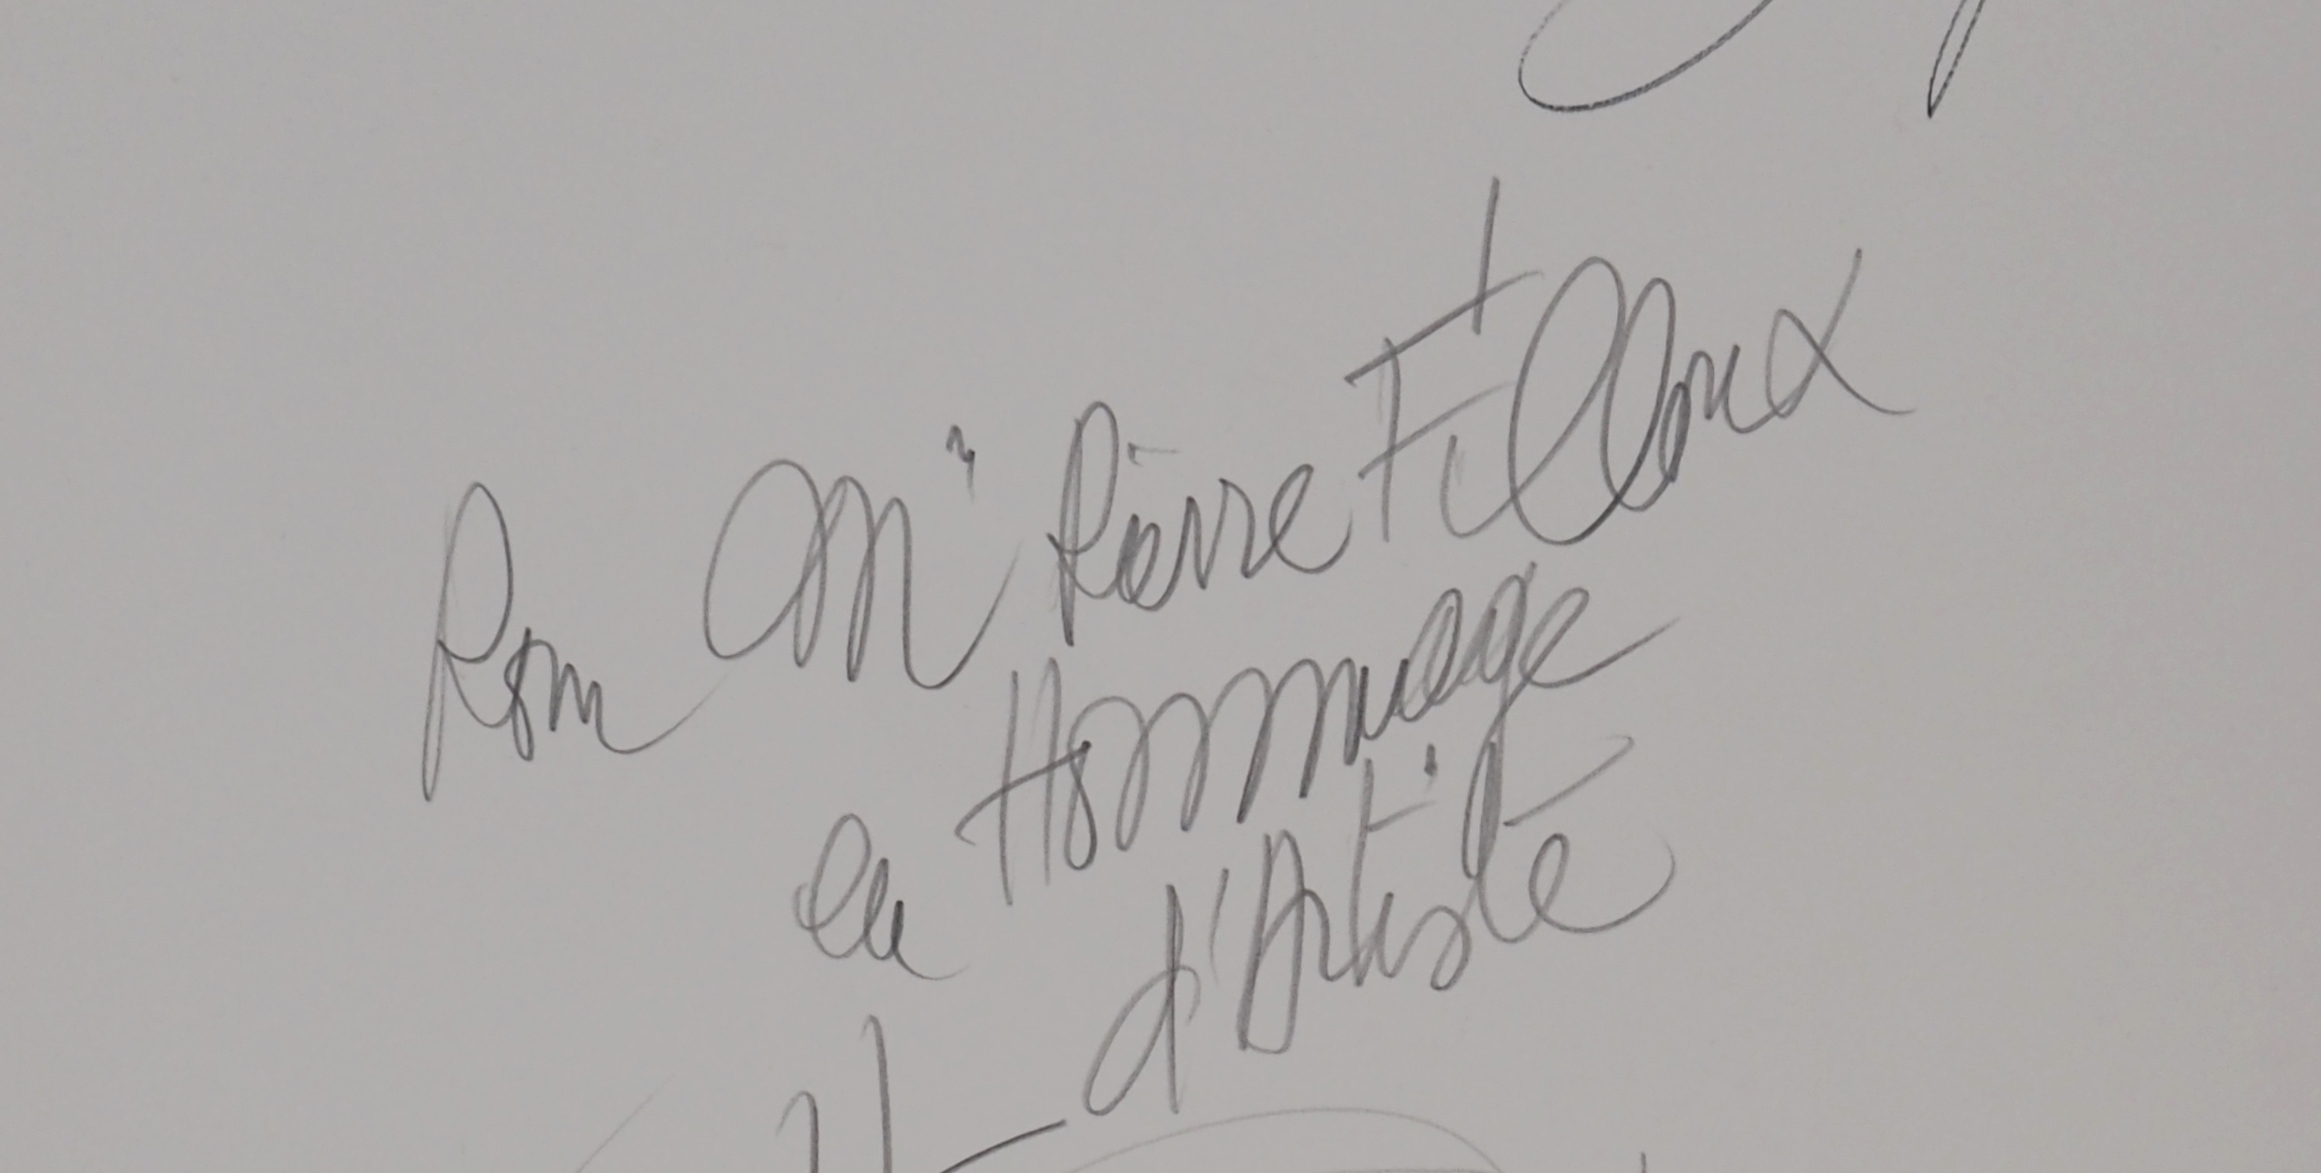 Pour Mr Pierre Filloux
en Hommage
d'Artiste